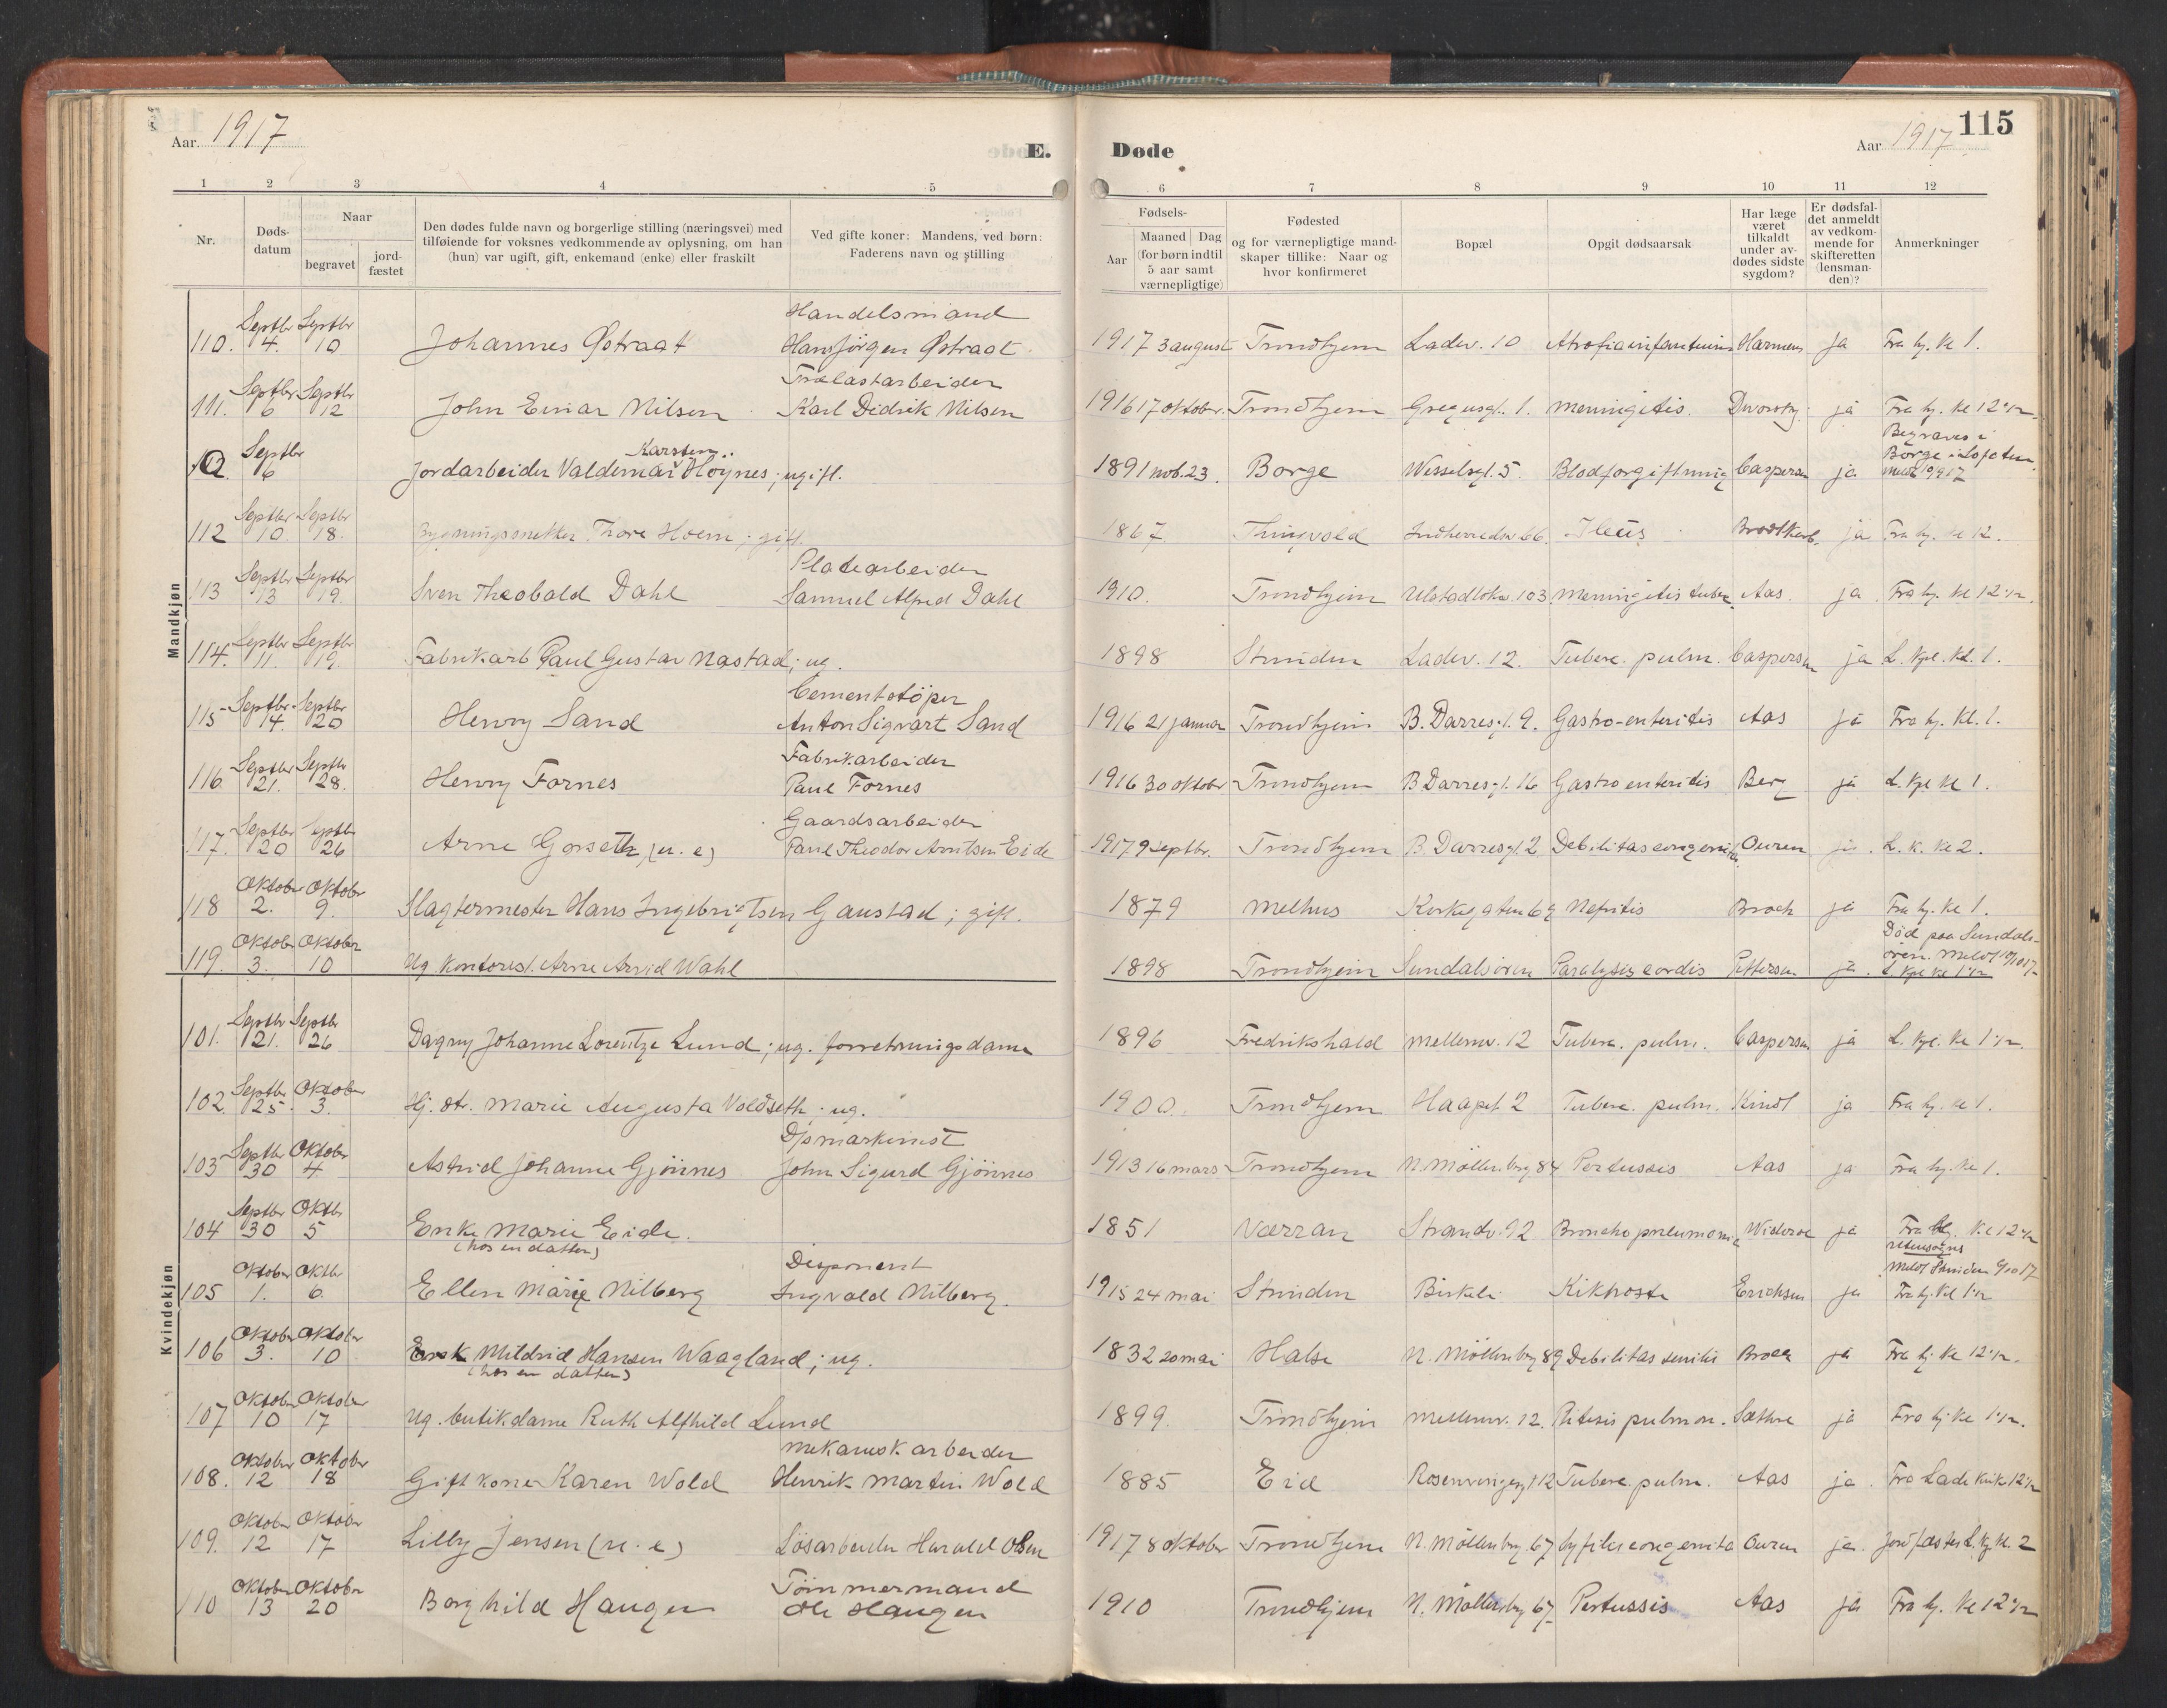 Aar 1917
E. Døde
Aar 1917
115
1 2 3 4 5 6 7 8 9 10 11 12
Nr.
Døds-
datum
Naar
begravet
jord-
fæstet
Den dødes fulde navn og borgerlige stilling (næringsvei) med
tilføiende for voksnes vedkommende av oplysning, om han
(hun) var ugift, gift, enkemand (enke) eller fraskilt
Ved gifte koner: Mandens, ved børn:
Faderens navn og stilling
Fødsels-
Aar
Maaned Dag
(for børn indtil
5 aar samt
værnepligtige)
Fødested
og for værnepligtige mand-
skaper tillike: Naar og
hvor konfirmeret
Bopæl
Opgit dødsaarsak
Har læge
været
tilkaldt
under av-
dødes sidste
sygdom?
Er dødsfal-
det anmeldt
av vedkom-
mende for
skifteretten
(lensman-
den)?
Anmerkninger
Mandkjøn
Septbr Septbr Handelsmand
110. 4. 10 Johannes Østraat Hans Jørgen Østraat. 1917 3 august Trondhjem Ladev. 10 Atrofia infantum Harmens ja Fra hj. kl 1.
Septbr Septbr Trælastarbeider
111. 6 12 John Einar Nilsen Karl Didrik Nilsen 1916 17 oktober. Trondhjem Gregusgt. 1. Meningitis. Dworsky ja Fra hj. kl 12 1/2
Septbr Karsten Begraves i
6 Jordarbeider Valdemar Høynes; ugift. 1891 nov. 23. Borge Wesselsgt. 5. Blodforgiftning Caspersen ja Borge i Lofoten
Septbr Septbr
112 10. 18. Bygningssnekker Thore Hoem; gift. 1867 Thingvold Indherredsv. 66. Ileus Brodtkorb. ja Fra hj. kl 12.
Septbr Septbr Platearbeider
113 13 19. Sven Theobald Dahl Samuel Alfred Dahl 1910. Trondhjem Ulstadløkv. 103 Meningitis tuber. Aas. ja Fra hj. kl 12 1/2.
Septbr Septbr
114. 11. 19. Fabrikarb Paul Gustav Nastad; ug. 1898 Strinden Ladev. 12. Tuberc. pulm. Caspersen ja L. kpl. kl. 1.
Septbr Septbr Cementstöper
115 14. 20 Henry Sand Anton Sigvart Sand 1916 21 januar Trondhjem B. Darresgt. 9. Gastro-enteritis Aas ja Fra hj. kl. 1.
Septbr Septbr Fabrikarbeider
116. 21. 28. Henry Fornes Paul Fornes 1916 30 oktober Trondhjem B Darresgt. 16 Gastro enteritis Berg ja L. kpl kl 1.
Septbr Septbr Gaardsarbeider
117. 20 26 Arne Gorseth, (u. e) Paul Theodor Arntsen Eide 1917 9 septbr. Trondhjem B. Darresgt. 2 Debilitas congenita Ouren ja. L. k. kl 2.
Oktober Oktober
118 2. 9. Slagtermester Hans Ingebrigtsen Gaustad; gift. 1879 Melhus Kirkegaten 69 Nefritis Broch ja Fra hj. kl 1.
Oktober Oktober Död paa Sundals-
119. 3. 10 Ug kontorist. Arne Arvid Wahl 1898 Trondhjem Sundalsören Paralysis cordis Pettersen ja. ören. Meldt 10/10 17
L. kpl kl 1 1/2
Kvindekjøn
Septbr Septbr
101. 21. 26 Dagny Johanne Lorentze Lund; ug. forretningsdame 1896 Fredrikshald Mellemv. 12 Tuberc. pulm. Caspersen ja L. kpl. kl 1 1/2.
Septbr Oktober
102. 25. 3. Hj. dtr. Marie Augusta Voldseth; ug. 1900. Trondhjem Haapst. 2 Tuberc. pulm. Kindt ja Fra hj. kl 1.
Septbr Oktober Dpsmaskinist
103 30 4 Astrid Johanne Gjönnes John Sigurd Gjönnes 1913 16 mars Trondhjem N. Möllenberg 84 Pertussis Aas ja Fra hj. kl 1.
Septbr Oktbr
104 30 5 Enke Marie Eide. 1851 Værran Strandv. 92 Bronchopneumoni Wideroe ja Fra hj. kl 12 1/2
(hos en datter) Utensogns
Oktober Oktbr Disponent Meldt Strinden 9/10 17
105 1. 6. Ellen Marie Nilberg Ingvald Nilberg. 1915 24 mai Strinden Birkeli Kikhoste Erichsen ja Fra hj. kl 1 1/2
Oktober Oktober
106 3. 10 Mildrid Hansen Waagland; ug. 1832 20 mai Halse N. Möllenberg 89 Debilitas senilis Broch ja Fra hj. kl 12 1/2.
(hos en datter)
Oktober Oktober
107 10 17 Ug. butikdame Ruth Alfhild Lund 1899. Trondhjem Mellemv. 12. Ptisis pulmon. Sæthre ja Fra hj. kl 1 1/2.
Oktober Oktober Mekanisk arbeider
108. 12 18 Gift kone Karen Wold Henrik Martin Wold 1885 Eid Rosenvingesgt 12 Tuberc. pulm. Aas ja. Fra Lade kirk 12 1/2
Oktober Oktober
109. 12 17 Lilly Jensen (u. e) Løsarbeider Harald Olsen 1917 8 oktober Trondhjem N. Möllenberg 67 Syfilis congenita Ouren ja. Jordfæstes L. kp kl. 2
Oktober Oktober Tömmermand
110 13 20 Borghild Haugen Ole Haugen 1910 Trondhjem N. Möllenberg 67 Pertussis Aas ja Fra hj. kl 12 1/2